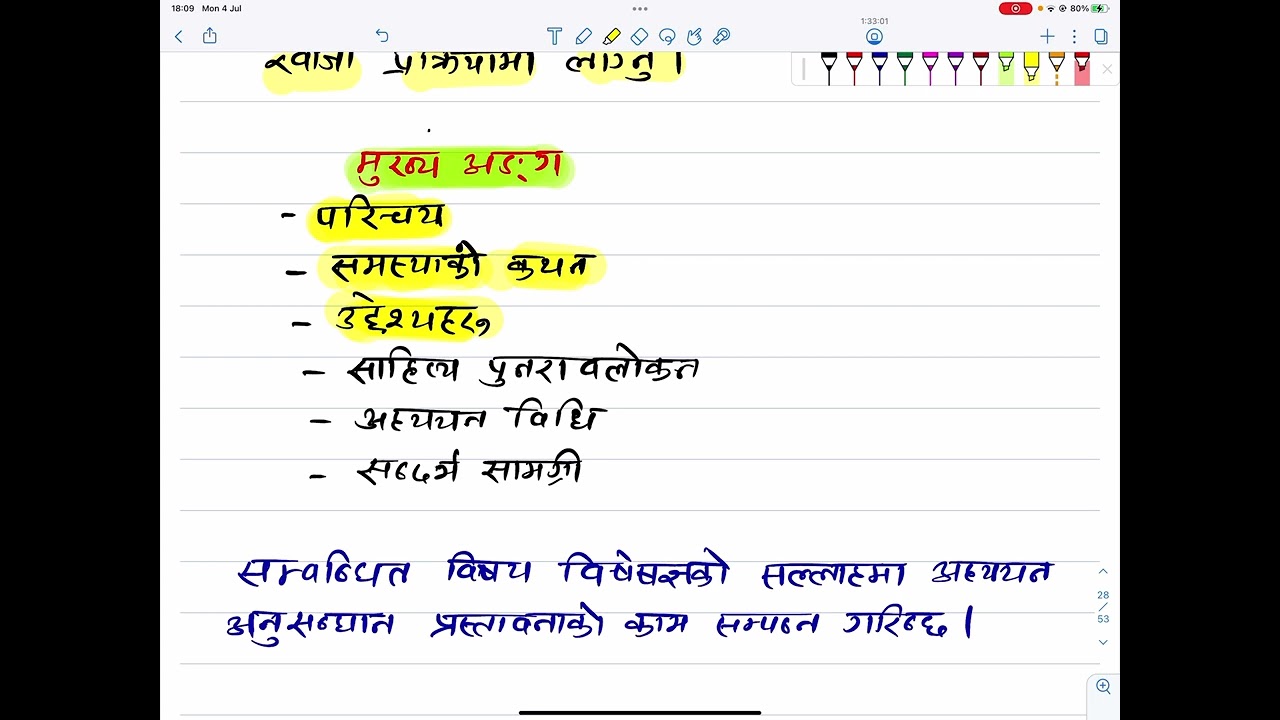 18:09 Mon 4 Jul
80%
1:33:01
प्रक्रियामा लाग्नु।
मुख्य अङ्ग
- परिचय
- समस्याको कथन
- उद्देश्यहरू
- साहित्य पुनरावलोकन
- अध्ययन विधि
- सन्दर्भ सामग्री
सम्बन्धित विषय विषेषज्ञको सल्लाहमा अध्ययन
अनुसन्धान प्रस्तावनाको काम सम्पन्न गरिन्छ।
28
/
53